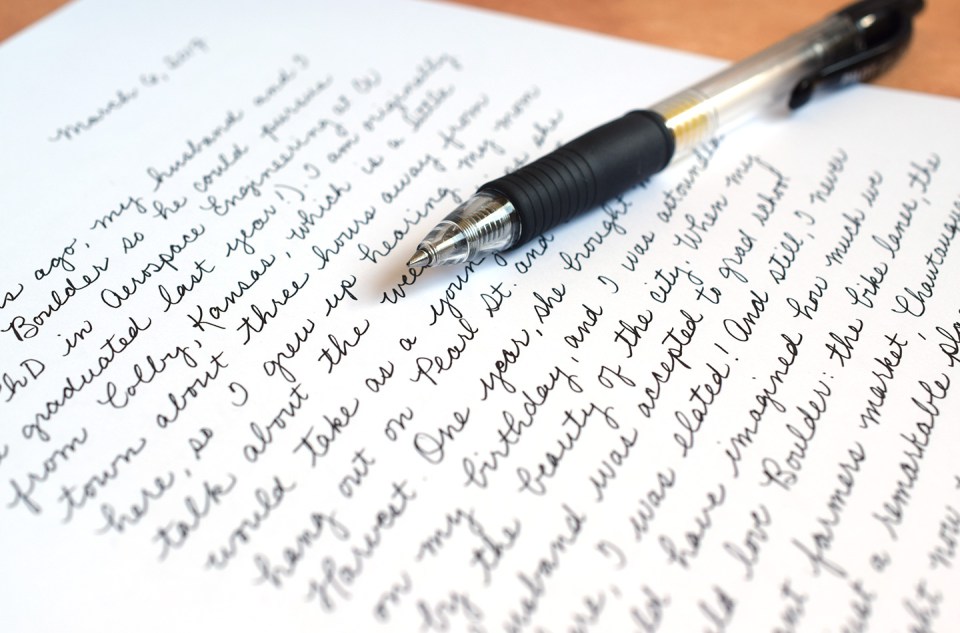 March 6,
ago, my husband and I
Boulder so he could pursue
PhD in Aerospace Engineering at
graduated last year!). I am originally
from Colby, Kansas, which is a little
town about three hours away from
here, so I grew up hearing my mom
talk about the she
would take as a young
hang out on Pearl St. and
Harvest. One year, she brought
on my birthday, and I was
by the beauty of the city. When my
husband was accepted to grad school
I was elated! And still, I never
have imagined how much we
love Boulder: the bike lanes, the
farmers market, Chautauqua
a remarkable
now